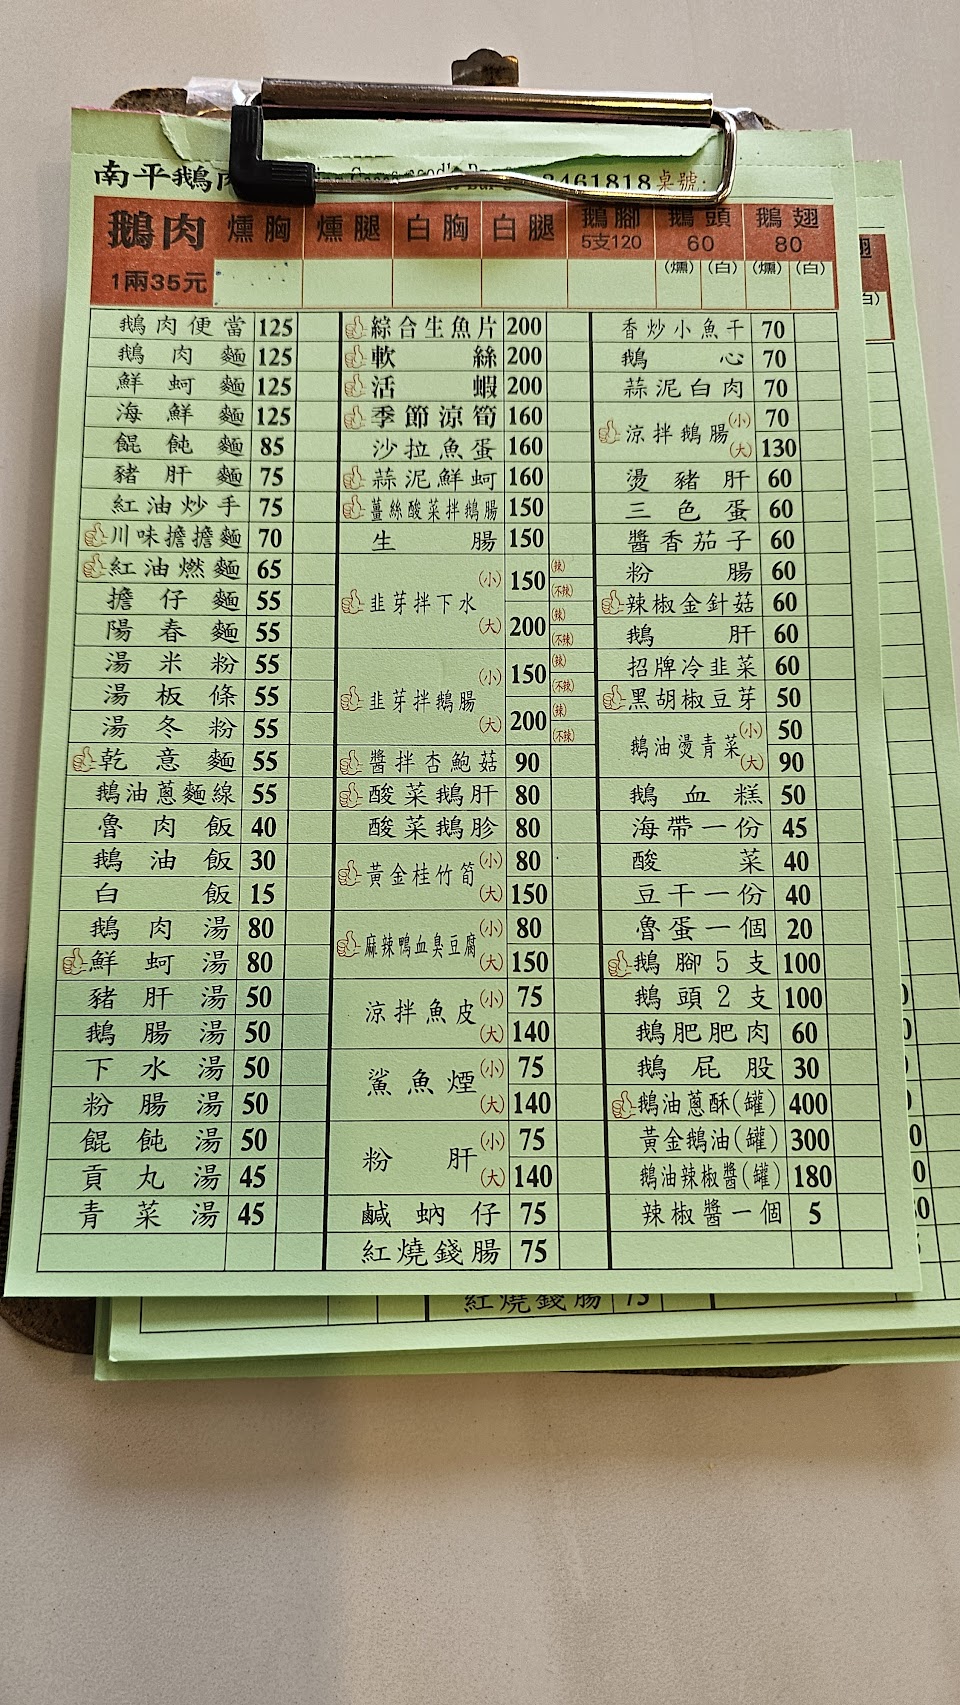 南平鵝肉 3461818 桌號:
鵝肉 燻胸 燻腿 白胸 白腿 鵝腳 鵝頭 鵝翅
5支120 60 80
1兩35元 (燻) (白) (燻) (白)
鵝肉便當 125
鵝肉麵 125
鮮蚵麵 125
海鮮麵 125
餛飩麵 85
豬肝麵 75
紅油炒手 75
川味擔擔麵 70
紅油燃麵 65
擔仔麵 55
陽春麵 55
湯米粉 55
湯板條 55
湯冬粉 55
乾意麵 55
鵝油蔥麵線 55
魯肉飯 40
鵝油飯 30
白飯 15
鵝肉湯 80
鮮蚵湯 80
豬肝湯 50
鵝腸湯 50
下水湯 50
粉腸湯 50
餛飩湯 50
貢丸湯 45
青菜湯 45
綜合生魚片 200
軟絲 200
活蝦 200
季節涼筍 160
沙拉魚蛋 160
蒜泥鮮蚵 160
薑絲酸菜拌鵝腸 150
生腸 150
韭芽拌下水 (小) 150 (辣) (不辣)
(大) 200 (辣) (不辣)
韭芽拌鵝腸 (小) 150 (辣) (不辣)
(大) 200 (辣) (不辣)
醬拌杏鮑菇 90
酸菜鵝肝 80
酸菜鵝胗 80
黃金桂竹筍 (小) 80
(大) 150
麻辣鴨血臭豆腐 (小) 80
(大) 150
涼拌魚皮 (小) 75
(大) 140
鯊魚煙 (小) 75
(大) 140
粉肝 (小) 75
(大) 140
鹹蚋仔 75
紅燒錢腸 75
香炒小魚干 70
鵝心 70
蒜泥白肉 70
涼拌鵝腸 (小) 70
(大) 130
燙豬肝 60
三色蛋 60
醬香茄子 60
粉腸 60
辣椒金針菇 60
鵝肝 60
招牌冷韭菜 60
黑胡椒豆芽 50
鵝油燙青菜 (小) 50
(大) 90
鵝血糕 50
海帶一份 45
酸菜 40
豆干一份 40
魯蛋一個 20
鵝腳5支 100
鵝頭2支 100
鵝肥肥肉 60
鵝屁股 30
鵝油蔥酥(罐) 400
黃金鵝油(罐) 300
鵝油辣椒醬(罐) 180
辣椒醬一個 5
紅燒錢腸 75